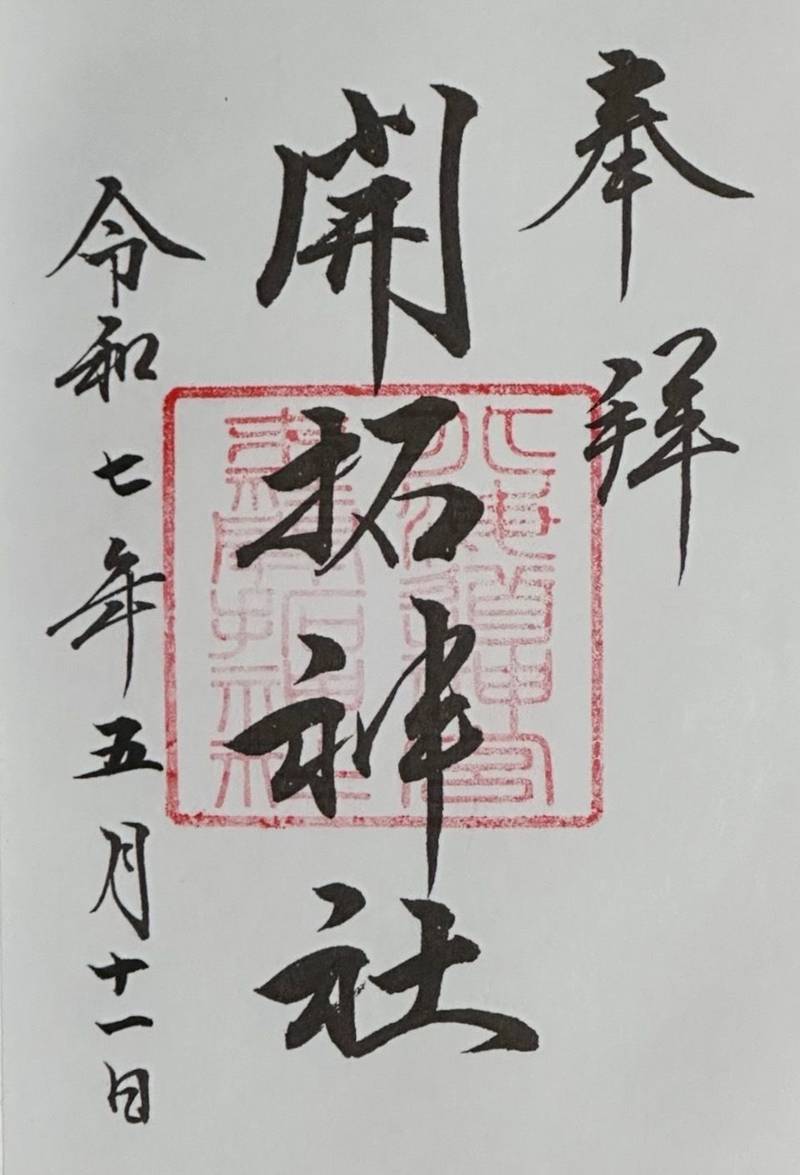 奉拜
開拓神社
北海道神宮
末社開拓神社
令和七年五月十一日